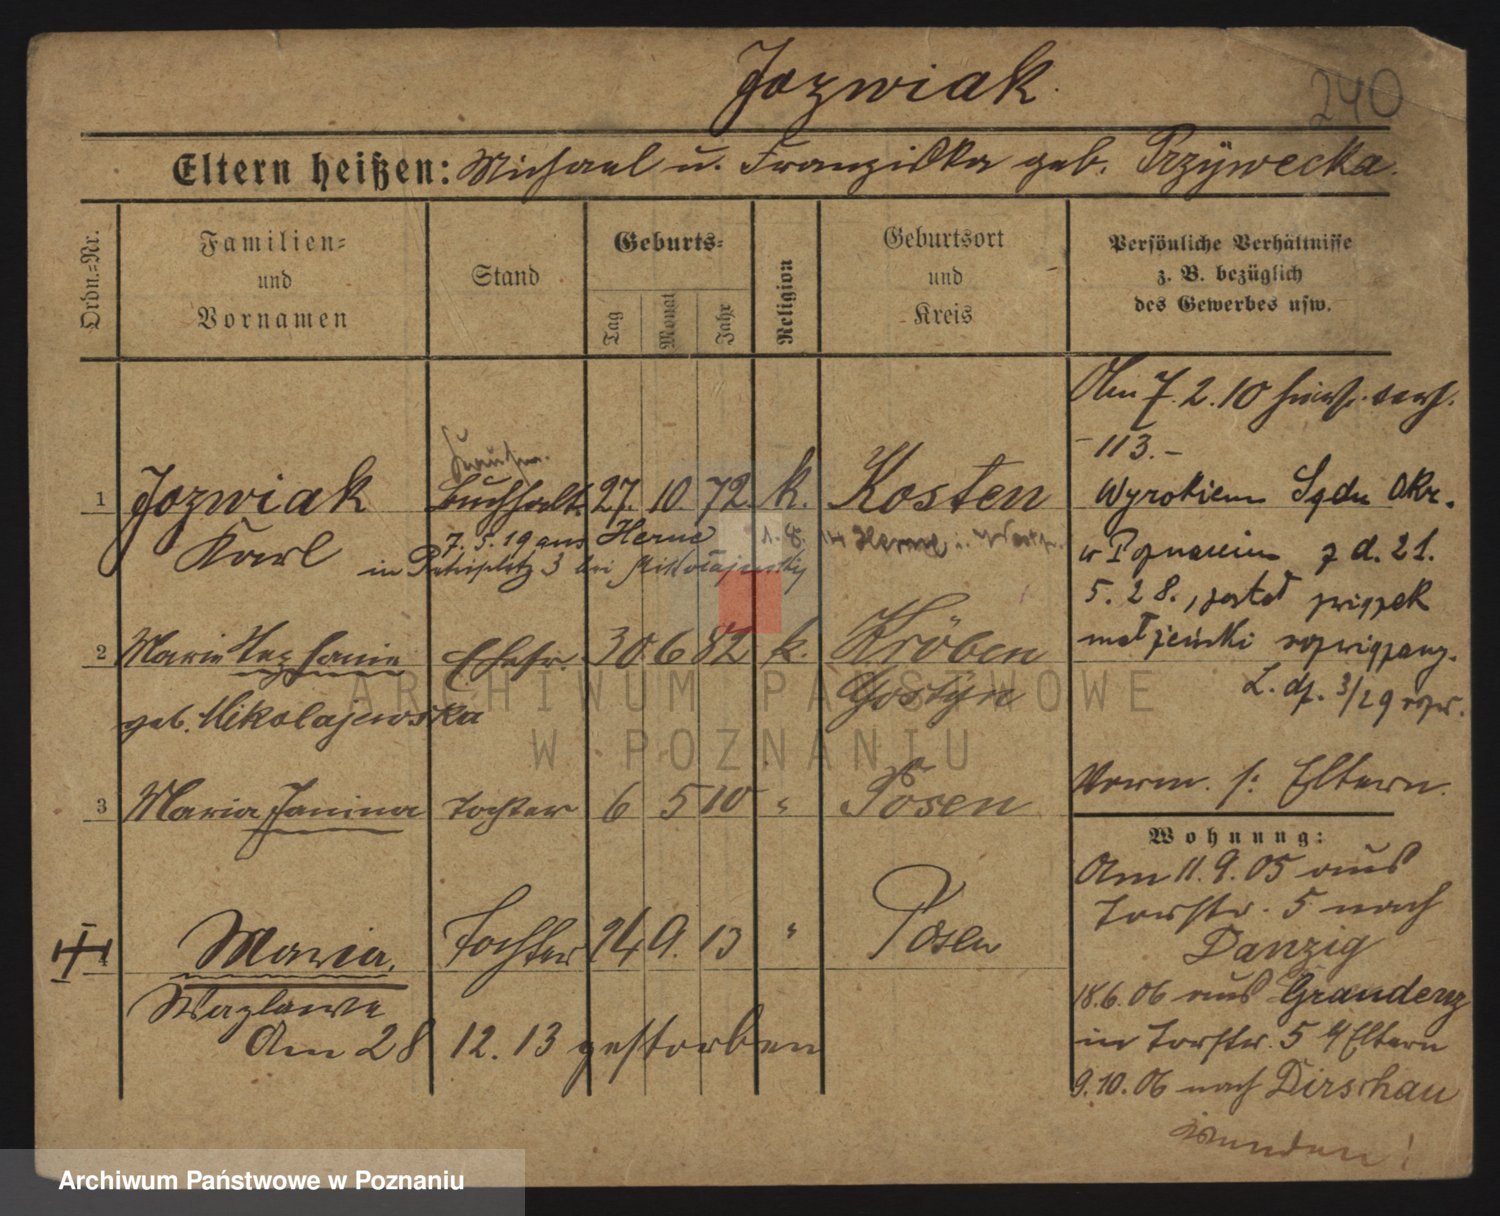 Jozwiak
240
Eltern heißen: Michael u. Franziska geb. Przÿwecka.
Ordn.=Nr.
Familien=
und
Vornamen
Stand
Geburts=
Tag
Monat
Jahr
Religion
Geburtsort
und
Kreis
Persönliche Verhältnisse
z. B. bezüglich
des Gewerbes usw.
Kaufm.
1 Jozwiak Buchhalt. 27. 10. 72 k. Kosten
Karl
7. 5. 19 aus Herne
in Petriplatz 3 bei Mikołajewsky
2 Marie Stephanie Ehefr. 30 6 82 k. Kröben
Gostÿn
geb. Mikolajewska
3 Maria Janina Tochter 6 5 10 " Posen
4 Maria Tochter 24 9. 13 " Posen
Wazlawa
Am 28 12. 13 gestorben
Am 7. 2. 10
113.
Wyrokiem Sądu Okr.
w Poznaniu z d. 21.
5. 28., został związek
małżeński rozwiązany.
L. dz. 3/29
Verm. s: Eltern.
Wohnung:
Am 11. 9. 05 aus
Torstr. 5 nach
Danzig
18.6.06 aus Graudenz
in Torstr. 5 Eltern
9.10.06 nach Dirschau
wenden!
ARCHIWUM PAŃSTWOWE
W POZNANIU
Archiwum Państwowe w Poznaniu